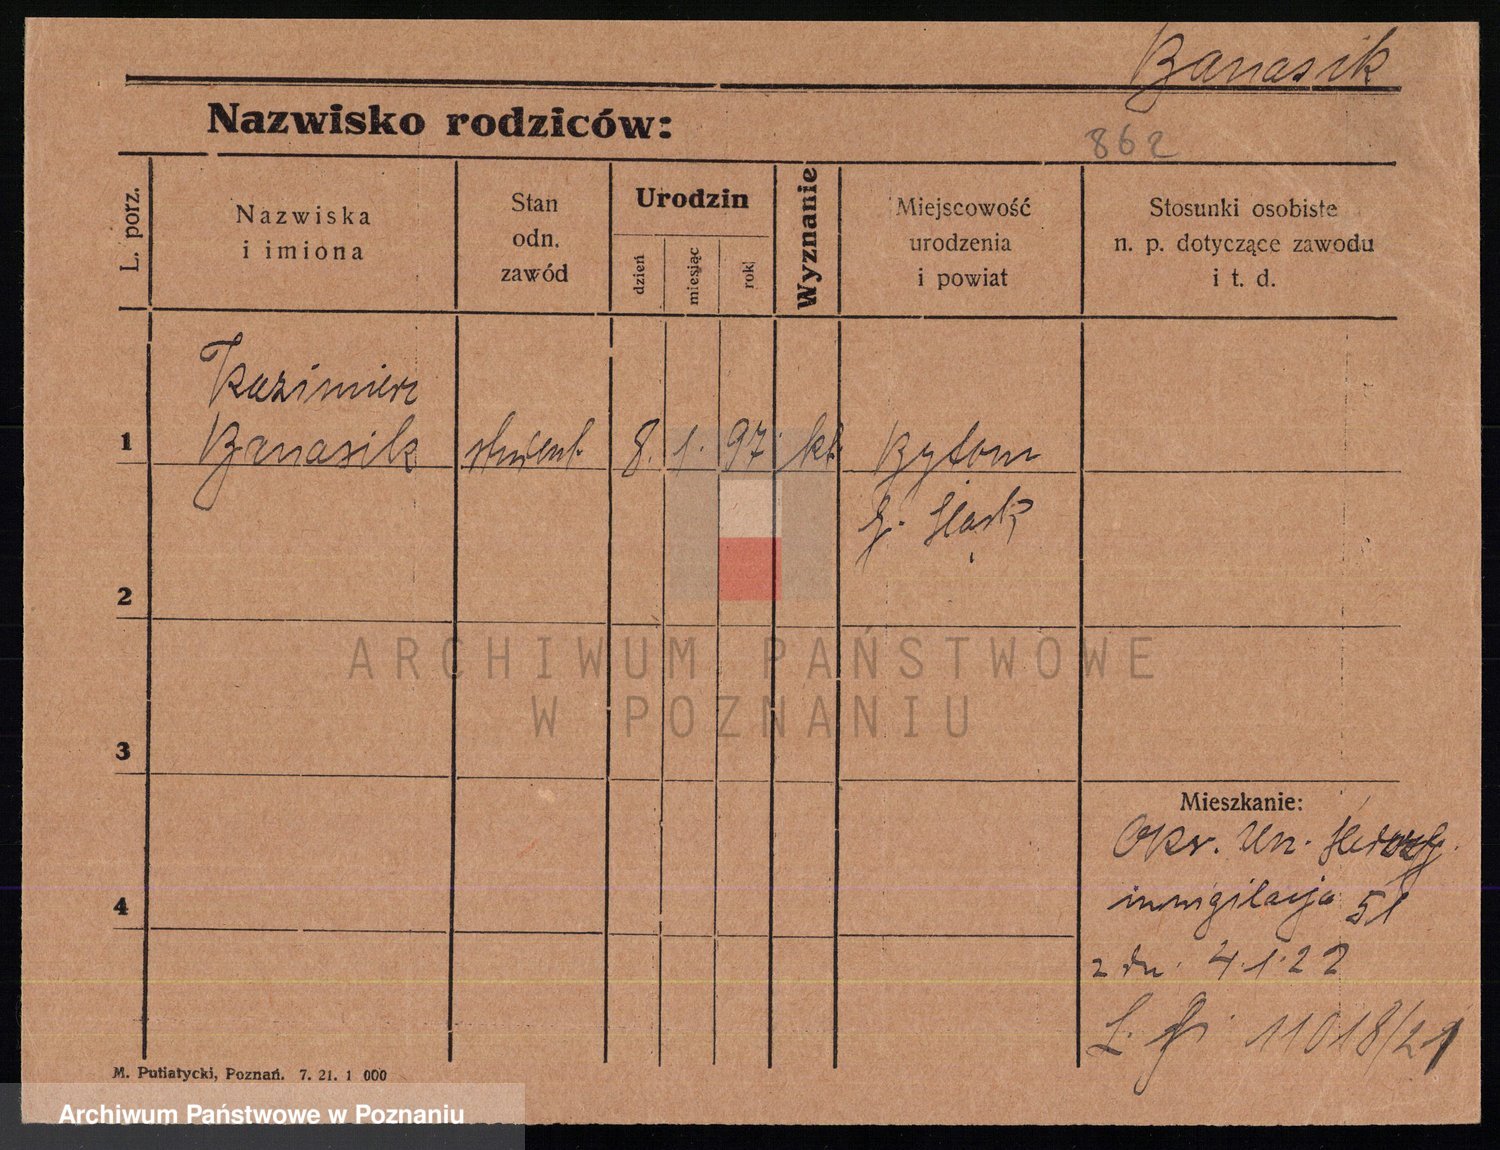 Banasik
Nazwisko rodziców:
862
L. porz.
Nazwiska
i imiona
Stan
odn.
zawód
Urodzin
dzień
miesiąc
rok
Wyznanie
Miejscowość
urodzenia
i powiat
Stosunki osobiste
n. p. dotyczące zawodu
i t. d.
Kazimierz
1 Banasik student. 8. 1. 97. kt. Bytom
g. Śląsk
2
ARCHIWUM PAŃSTWOWE
W POZNANIU
3
Mieszkanie:
Okr. Urz.
inwigilacja
4
z dn. 4.1.22
L. 11018/21
M. Putiatycki, Poznań. 7. 21. 1 000
Archiwum Państwowe w Poznaniu